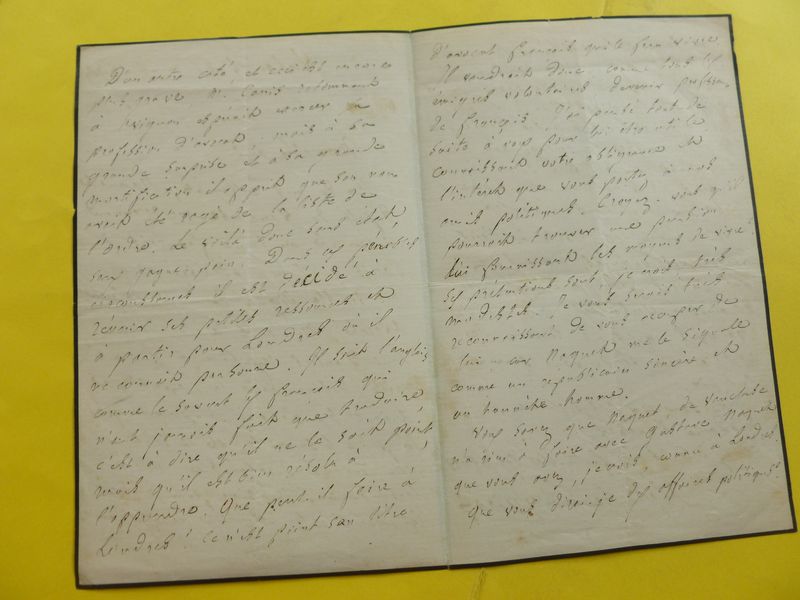 D'un autre côté, et ceci est encore
plus grave M. Conil retournant
à Avignon espérait exercer la
profession d'avocat, mais à sa
grande surprise et à sa grande
mortification il apprit que son nom
avait été rayé de la liste de
l'Ordre. Le voilà donc sans état
sans gagne-pain. Dans ces pénibles
circonstances il est décidé à
réunir ses petites ressources et
à partir pour Londres où il
ne connait personne. Il sait l'anglais
comme le savent les français qui
n'ont jamais fait que traduire
c'est à dire qu'il ne le sait point,
mais qu'il est bien résolu à
l'apprendre. Que peut-il faire à
Londres? Ce n'est point son titre
d'avocat français qui le fera vivre.
Il voudrait donc comme tous les
émigrés volontaires devenir professeur
de français. J'ai pensé tout de
suite à vous pour lui être utile
connaissant votre obligeance et
l'intérêt que vous portez à nos
amis politiques. Croyez-vous qu'il
pourrait trouver une pension
lui fournissant les moyens de vivre?
Ses prétentions sont, je crois très
modestes. Je vous serais très
reconnaissant de vous occuper de
lui car Naquet me le signale
comme un républicain sincère et
un honnête homme.
Vous savez que Naquet, de Vaucluse
n'a rien à faire avec Gustave Naquet
que vous avez, je crois, connu à Londres.
Que vous dirai-je des affaires politiques?